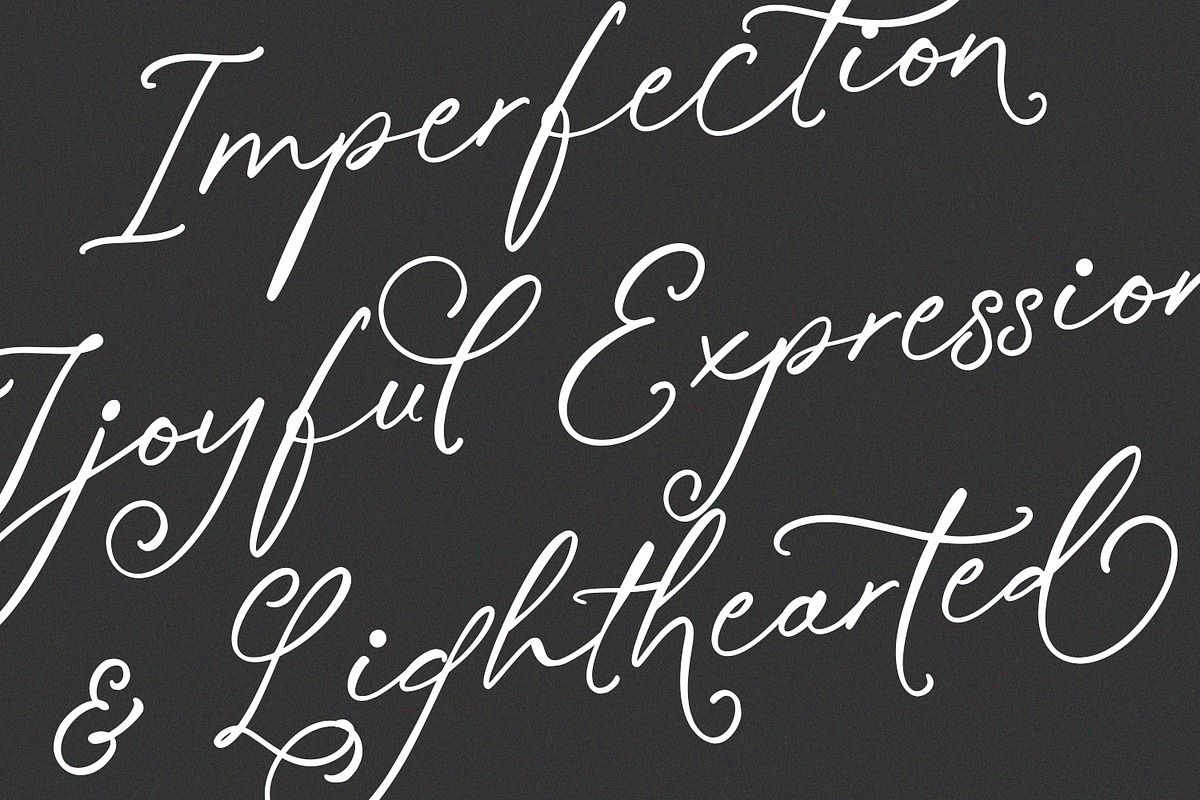 Imperfection
Jjoyful Expression
& Lighthearted